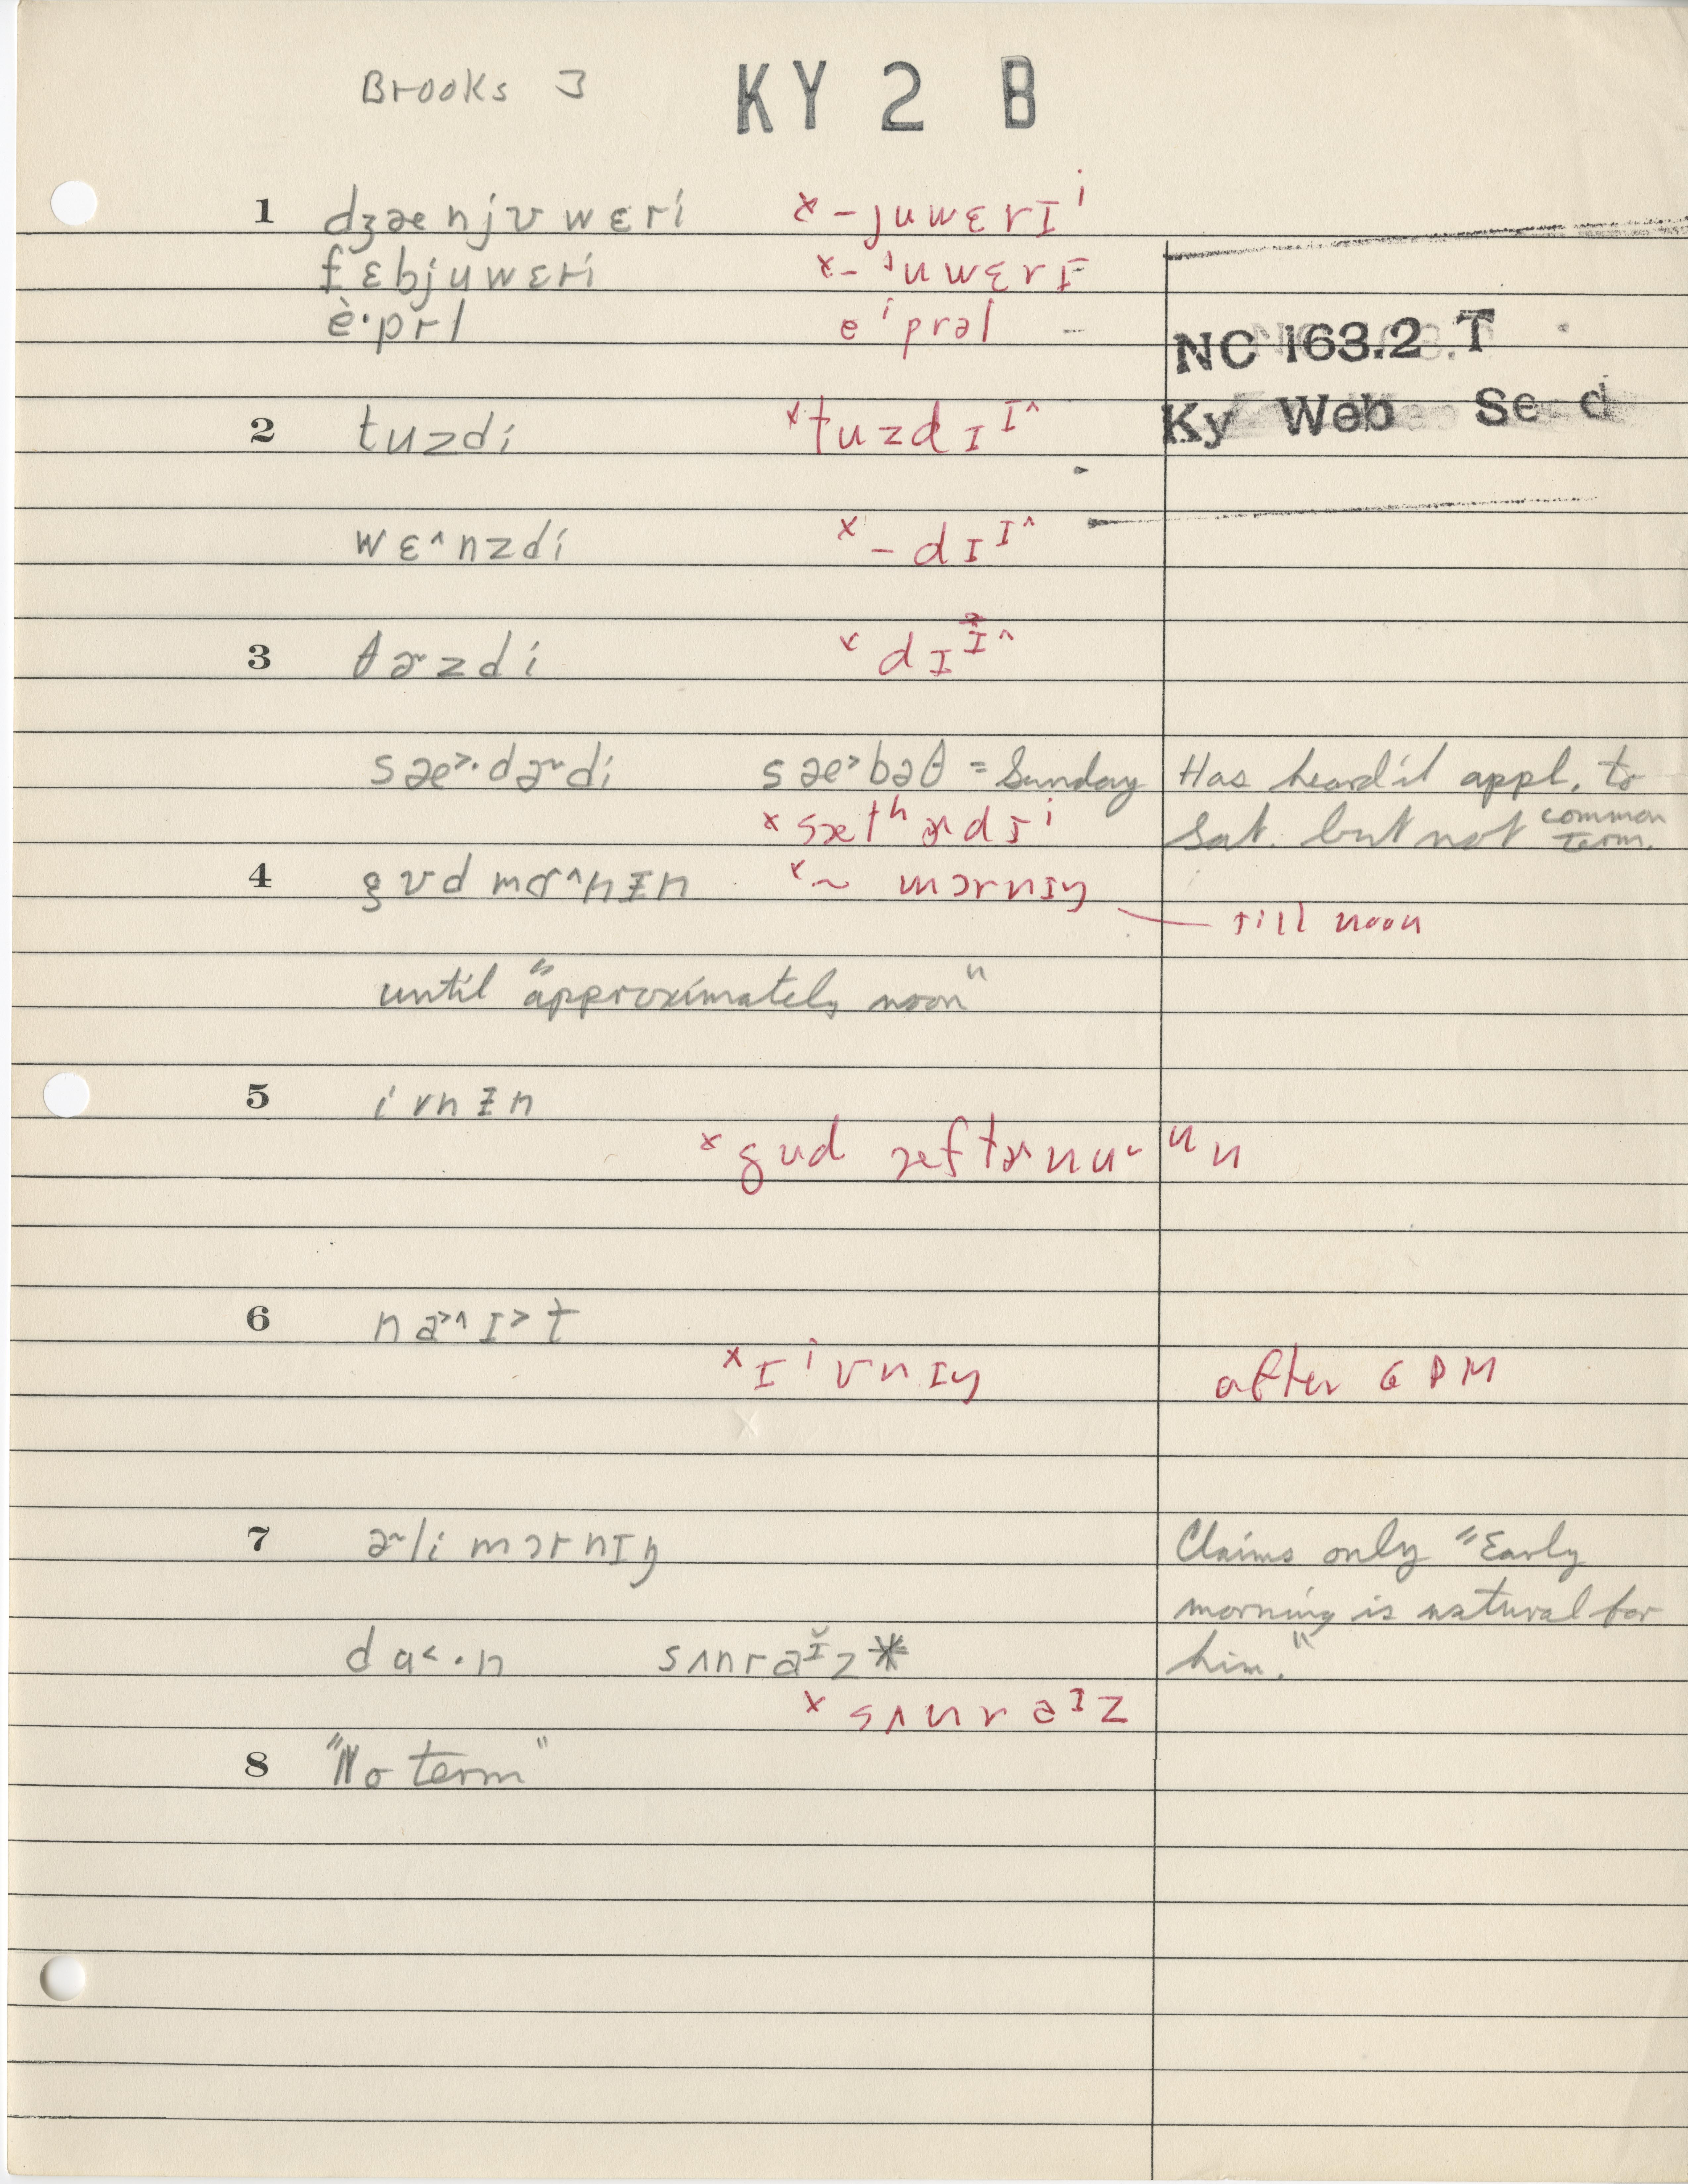 Brooks 3 KY 2 B
1 dʒænjʊwɛri x -juwɛrɪⁱ
fɛbjuwɛri x-ʲuwɛrɪ
è·prl eⁱprəl -
NC 163.2 T
Ky Web Se d
2 tuzdi xtuzdɪᶦ^
wɛ^nzdi x-dɪᶦ^
3 θɚzdi x dɪᶦ^
sæ>·dɚdi sæ>bəθ = Sunday Has heard it appl. to
x sætʰɚdɪⁱ Sat. but not common term.
4 gʊd mɔ^nɪn x~ mɔrnɪŋ
till noon
until "approximately noon"
5 ivnɪn
x gud æftɚnuᵘn
6 na>^ɪ>t
x ɪⁱvnɪŋ after 6 PM
7 ɚli mɔrnɪŋ Claims only "Early
morning is natural for
dɑ<·n sʌnraɪ̆z* him."
x sʌnraᶦz
8 "No term"